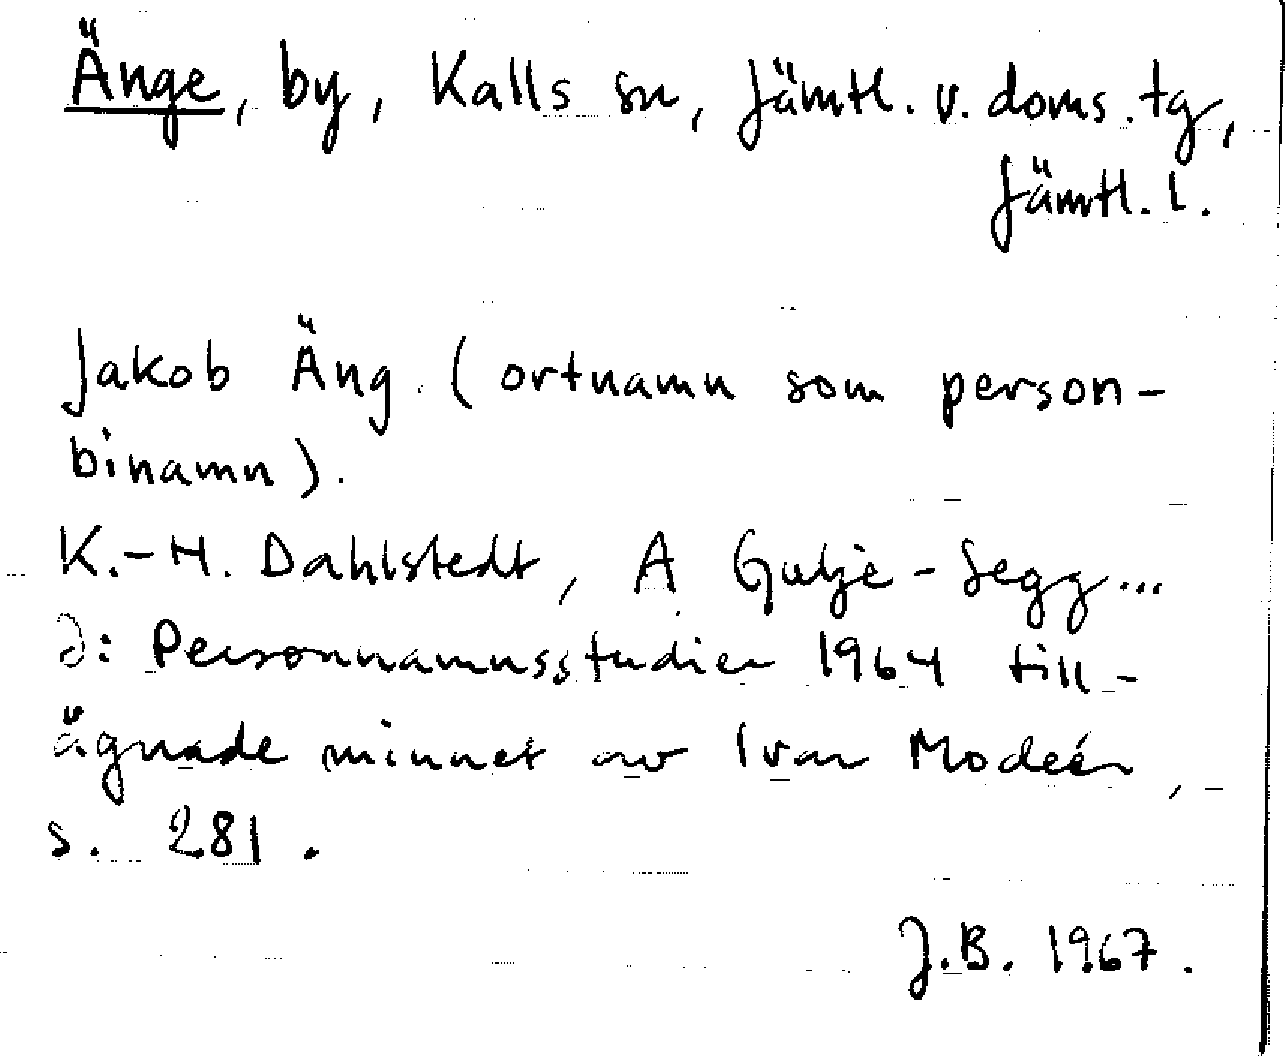 Änge, by, Kalls sn, Jämtl. v. doms. tg,
Jämtl. l.
Jakob Äng. (ortnamn som person-
binamn).
K.-H. Dahlstedt, A Gulje-Segg...
I: Personnamnsstudier 1964 till-
ägnade minnet av Ivar Modeér,
s. 281.
J.B. 1967.